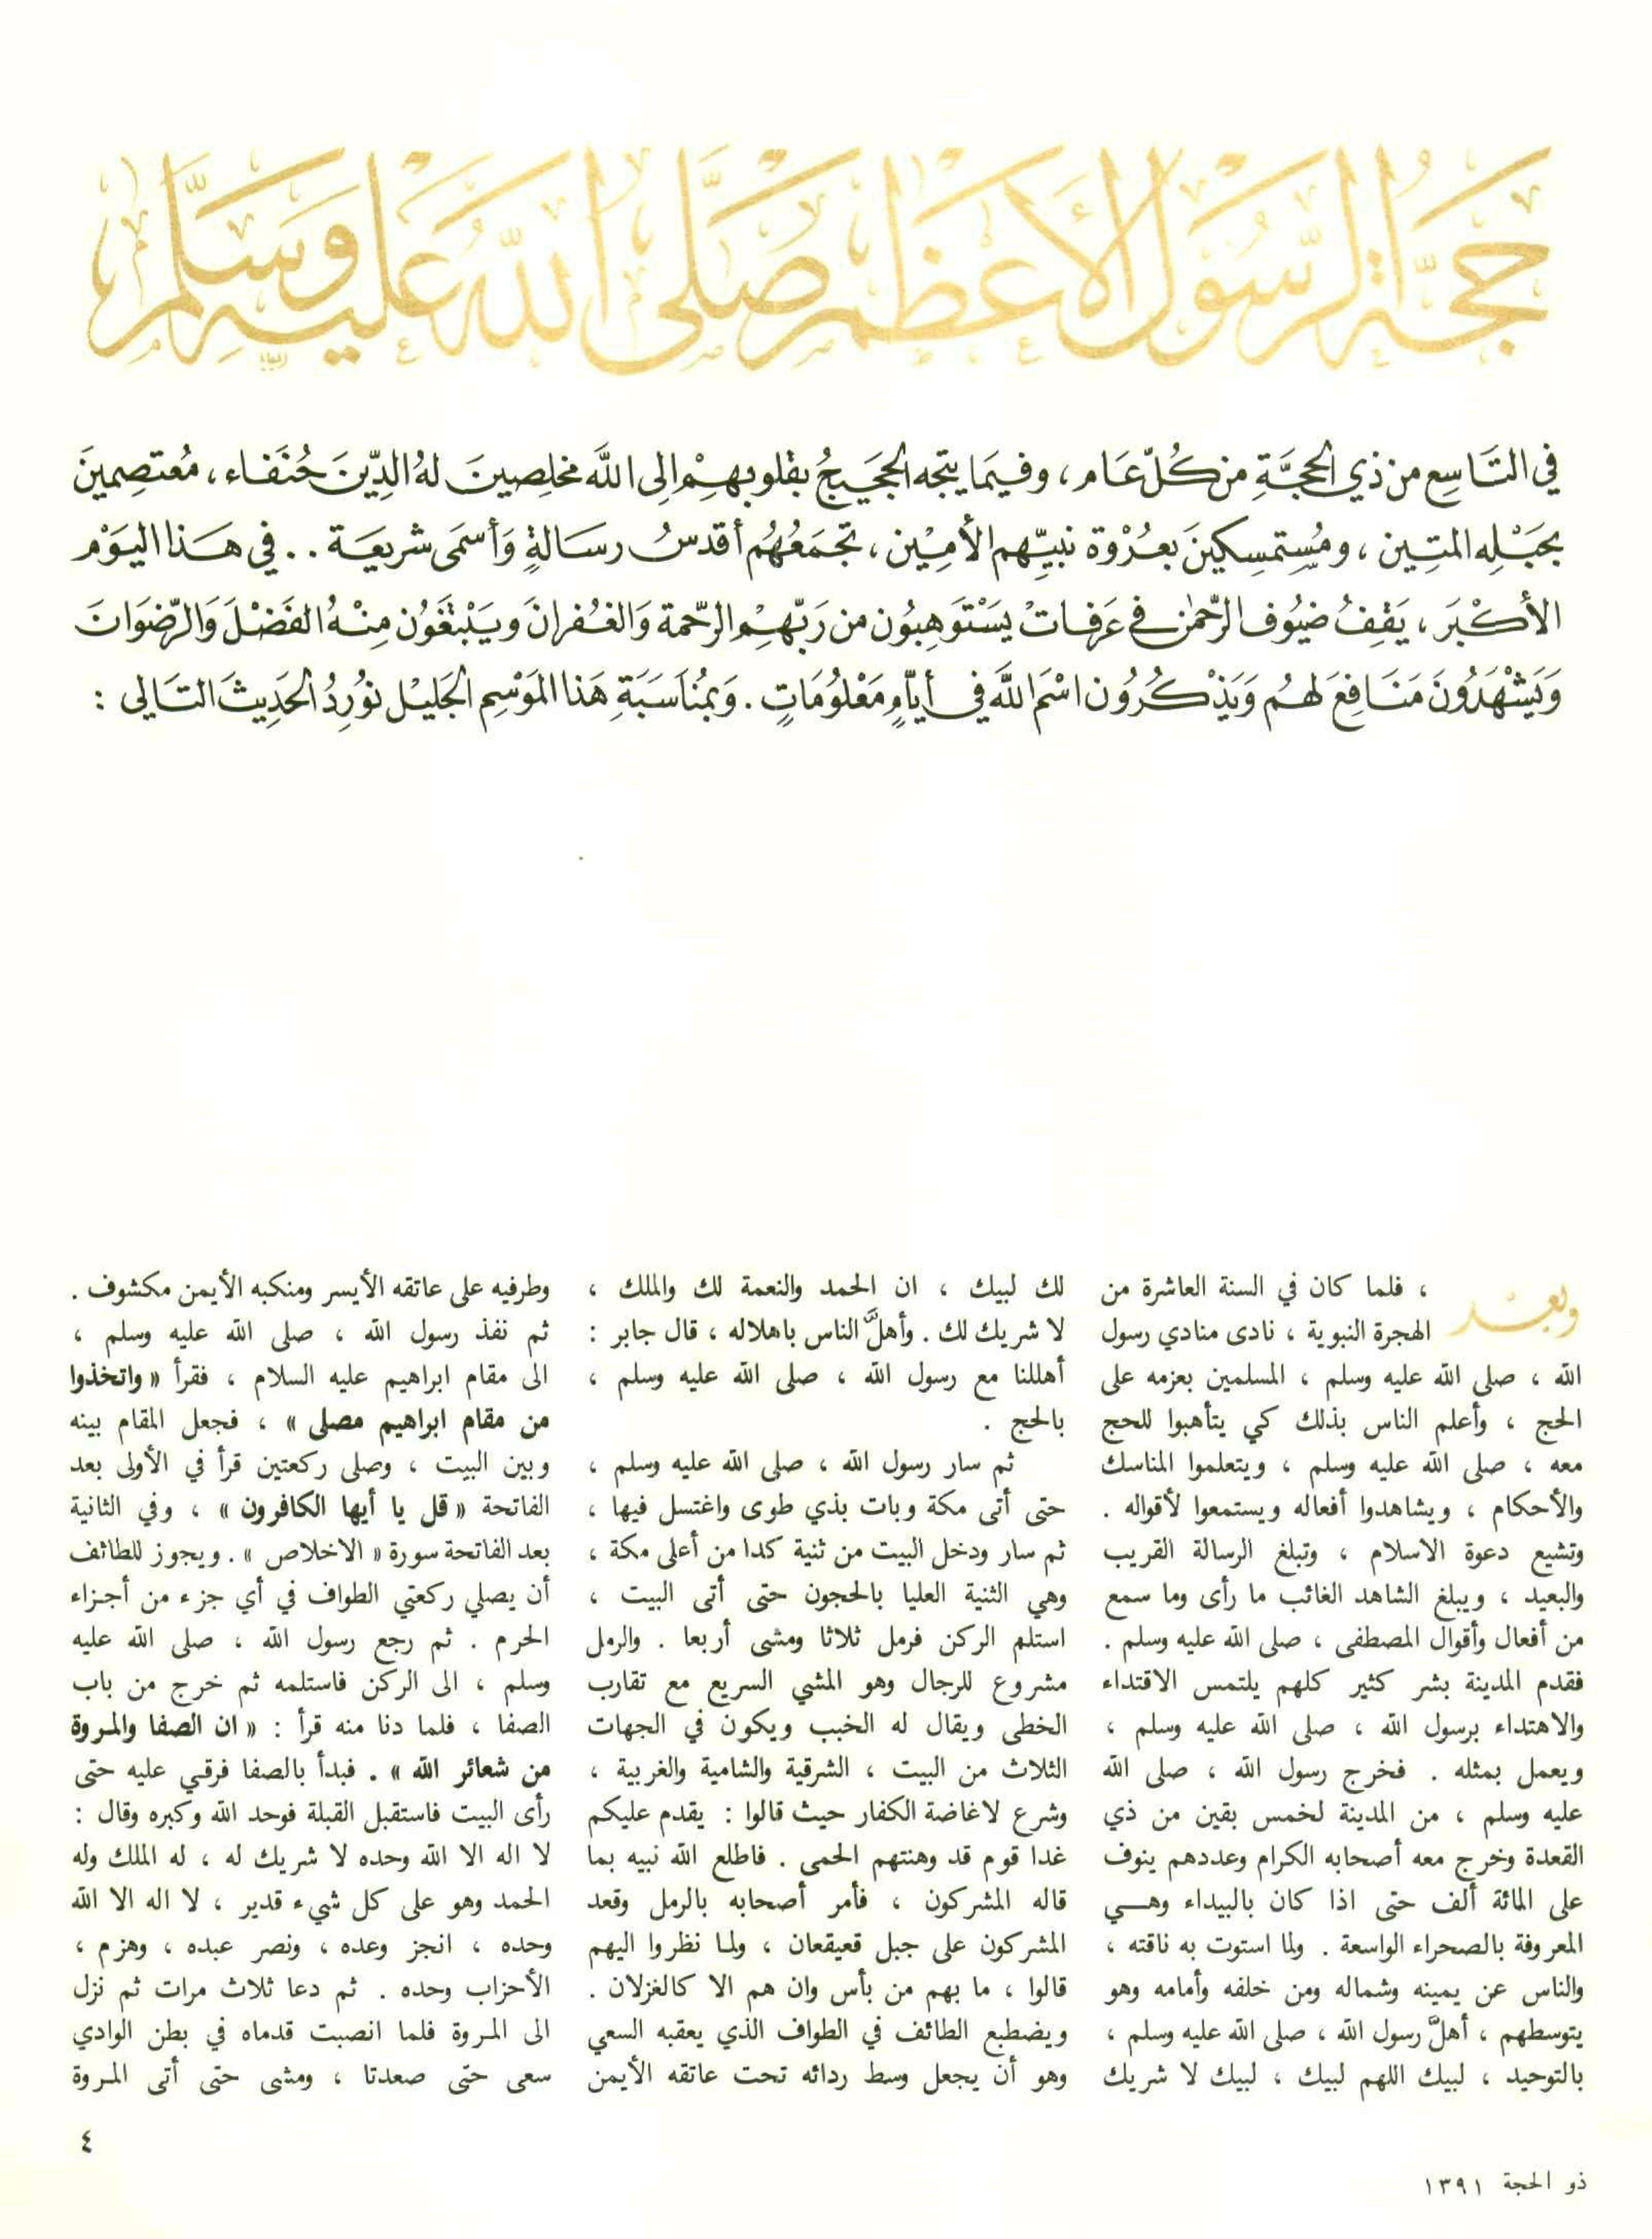 حَجَّةُ الرَّسُولِ الأَعْظَمِ صَلَّى اللهُ عَلَيْهِ وَسَلَّمَ
في التَّاسِع من ذي الحِجَّةِ من كُلّ عَام ، وفيمَا يتجه الحَجَيجُ بقلوبهِمْ إلى اللَّه مخلِصينَ لهُ الدِّينَ حُنَفاء ، مُعتصِمينَ
بحَبْلِه المتِين ، ومُستمسِكينَ بعُرْوة نبيِّهم الأمِيْن ، تجمَعُهُم أقدسُ رسَالةٍ وَأسمَى شريعَة .. في هَذا اليَوْم
الأكْبَر ، يَقِفُ ضيُوف الرَّحمٰن في عَرَفات يَسْتَوهِبُون من رَبّهِمْ الرَّحمة وَالغُفرانَ ويَبْتغُون مِنْهُ الفَضْلَ وَالرّضوَانَ
وَيَشْهَدُونَ مَنَافِعَ لهُم وَيَذْكُرُون اسْمَ اللَّه في أيَّامٍ مَعْلُومَاتٍ . وَبمُنَاسَبَةِ هَذا المَوْسِمِ الجَليْل نوُردُ الحَدِيثَ التَالِي :
وبعْد ، فلما كان في السنة العاشرة من
الهجرة النبوية ، نادى منادي رسول
الله ، صلى الله عليه وسلم ، المسلمين بعزمه على
الحج ، وأعلم الناس بذلك كي يتأهبوا للحج
معه ، صلى الله عليه وسلم ، ويتعلموا المناسك
والأحكام ، ويشاهدوا أفعاله ويستمعوا لأقواله .
وتشيع دعوة الاسلام ، وتبلغ الرسالة القريب
والبعيد ، ويبلغ الشاهد الغائب ما رأى وما سمع
من أفعال وأقوال المصطفى ، صلى الله عليه وسلم .
فقدم المدينة بشر كثير كلهم يلتمس الاقتداء
والاهتداء برسول الله ، صلى الله عليه وسلم ،
ويعمل بمثله . فخرج رسول الله ، صلى الله
عليه وسلم ، من المدينة لخمس بقين من ذي
القعدة وخرج معه أصحابه الكرام وعددهم ينوف
على المائة ألف حتى اذا كان بالبيداء وهـــي
المعروفة بالصحراء الواسعة . ولما استوت به ناقته ،
والناس عن يمينه وشماله ومن خلفه وأمامه وهو
يتوسطهم ، أهلَّ رسول الله ، صلى الله عليه وسلم ،
بالتوحيد ، لبيك اللهم لبيك ، لبيك لا شريك
لك لبيك ، ان الحمد والنعمة لك والملك ،
لا شريك لك . وأهلَّ الناس باهلاله ، قال جابر :
أهللنا مع رسول الله ، صلى الله عليه وسلم ،
بالحج .
ثم سار رسول الله ، صلى الله عليه وسلم ،
حتى أتى مكة وبات بذي طوى واغتسل فيها ،
ثم سار ودخل البيت من ثنية كدا من أعلى مكة ،
وهي الثنية العليا بالحجون حتى أتى البيت ،
استلم الركن فرمل ثلاثا ومشى أربعا . والرمل
مشروع للرجال وهو المشي السريع مع تقارب
الخطى ويقال له الخبب ويكون في الجهات
الثلاث من البيت ، الشرقية والشامية والغربية ،
وشرع لاغاضة الكفار حيث قالوا : يقدم عليكم
غدا قوم قد وهنتهم الحمى . فاطلع الله نبيه بما
قاله المشركون ، فأمر أصحابه بالرمل وقعد
المشركون على جبل قعيقعان ، ولما نظروا اليهم
قالوا ، ما بهم من بأس وان هم الا كالغزلان .
ويضطبع الطائف في الطواف الذي يعقبه السعي
وهو أن يجعل وسط ردائه تحت عاتقه الأيمن
وطرفيه على عاتقه الأيسر ومنكبه الأيمن مكشوف .
ثم نفذ رسول الله ، صلى الله عليه وسلم ،
الى مقام ابراهيم عليه السلام ، فقرأ « واتخذوا
من مقام ابراهيم مصلى » ، فجعل المقام بينه
وبين البيت ، وصلى ركعتين قرأ في الأولى بعد
الفاتحة « قل يا أيها الكافرون » ، وفي الثانية
بعد الفاتحة سورة « الاخلاص » . ويجوز للطائف
أن يصلي ركعتي الطواف في أي جزء من أجزاء
الحرم . ثم رجع رسول الله ، صلى الله عليه
وسلم ، الى الركن فاستلمه ثم خرج من باب
الصفا ، فلما دنا منه قرأ : « ان الصفا والمروة
من شعائر الله » . فبدأ بالصفا فرقي عليه حتى
رأى البيت فاستقبل القبلة فوحد الله وكبره وقال :
لا اله الا الله وحده لا شريك له ، له الملك وله
الحمد وهو على كل شيء قدير ، لا اله الا الله
وحده ، انجز وعده ، ونصر عبده ، وهزم ،
الأحزاب وحده . ثم دعا ثلاث مرات ثم نزل
الى المروة فلما انصبت قدماه في بطن الوادي
سعى حتى صعدتا ، ومشى حتى أتى المروة
٤
ذو الحجة ١٣٩١